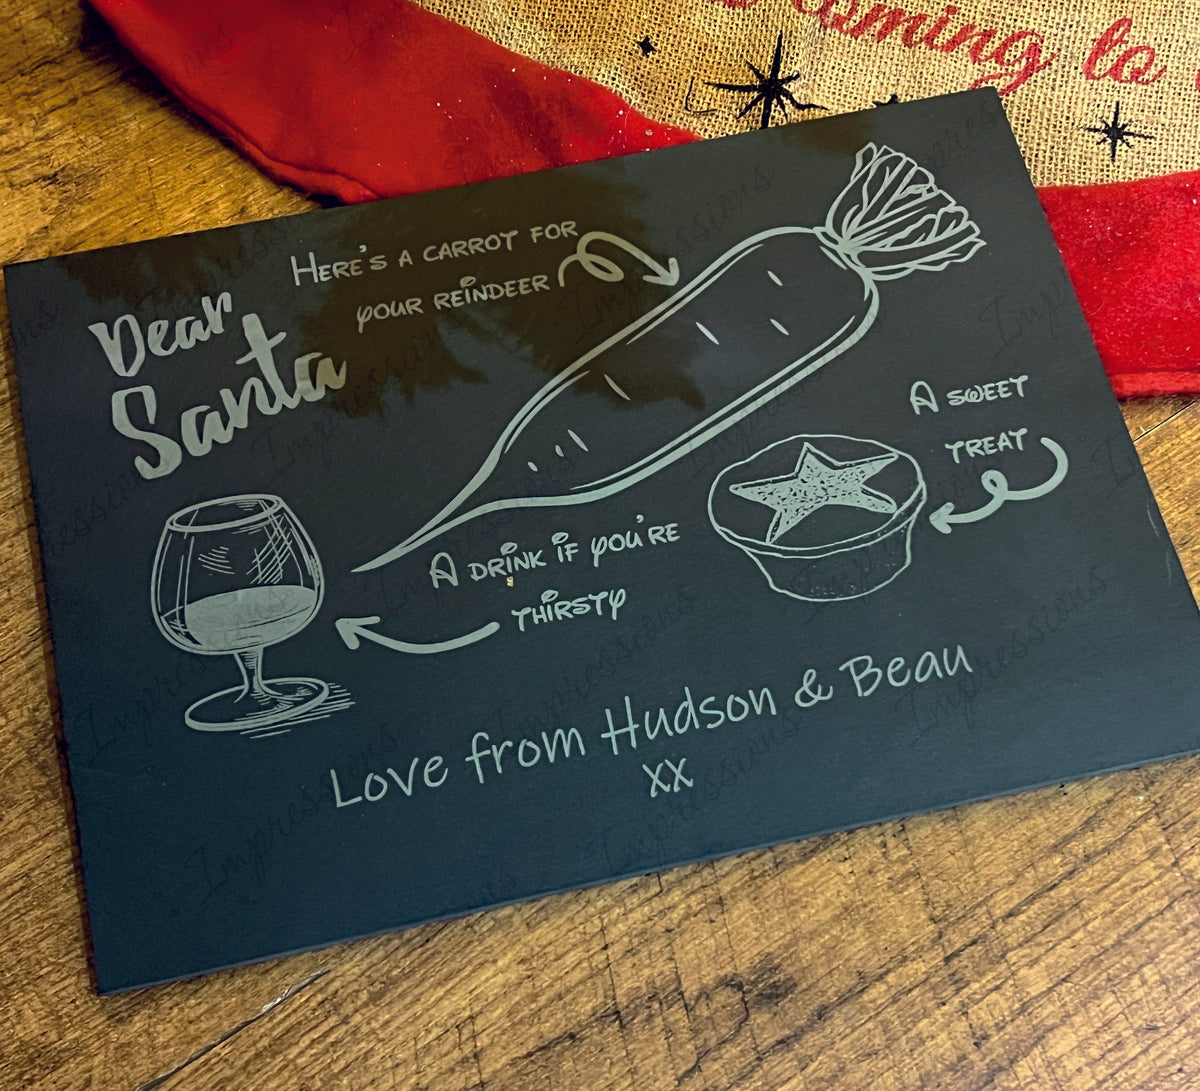 coming to
Dear
Santa
Here's a carrot for
your reindeer
A sweet
treat
A drink if you're
thirsty
Love from Hudson & Beau
xx
Impressions